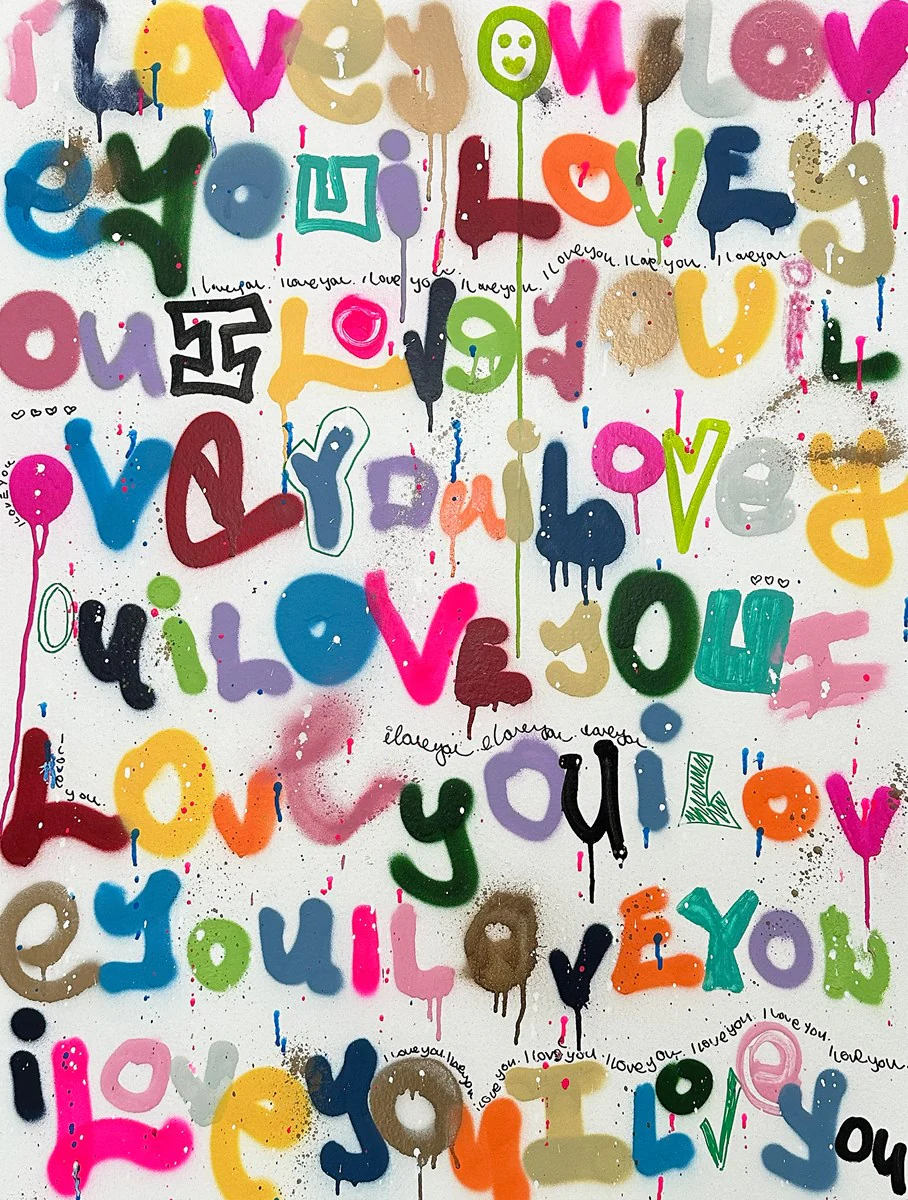 i Lovey ou Lov
eyou i LOVEy
I love you. I love you. I love you. I love you. I love you. I love you. I love you.
ou I LOVe you i L
I LOVE YOU
VeYou i LOVey
OuiLOVe yoUI
iloveyou iloveyou iloveyou
Love youiLov
you.
eyouiLoveYou
I love you. I love you. I love you. I love you. I love you. I love you. I love you. I love you.
iLoveyou I Lo√e you